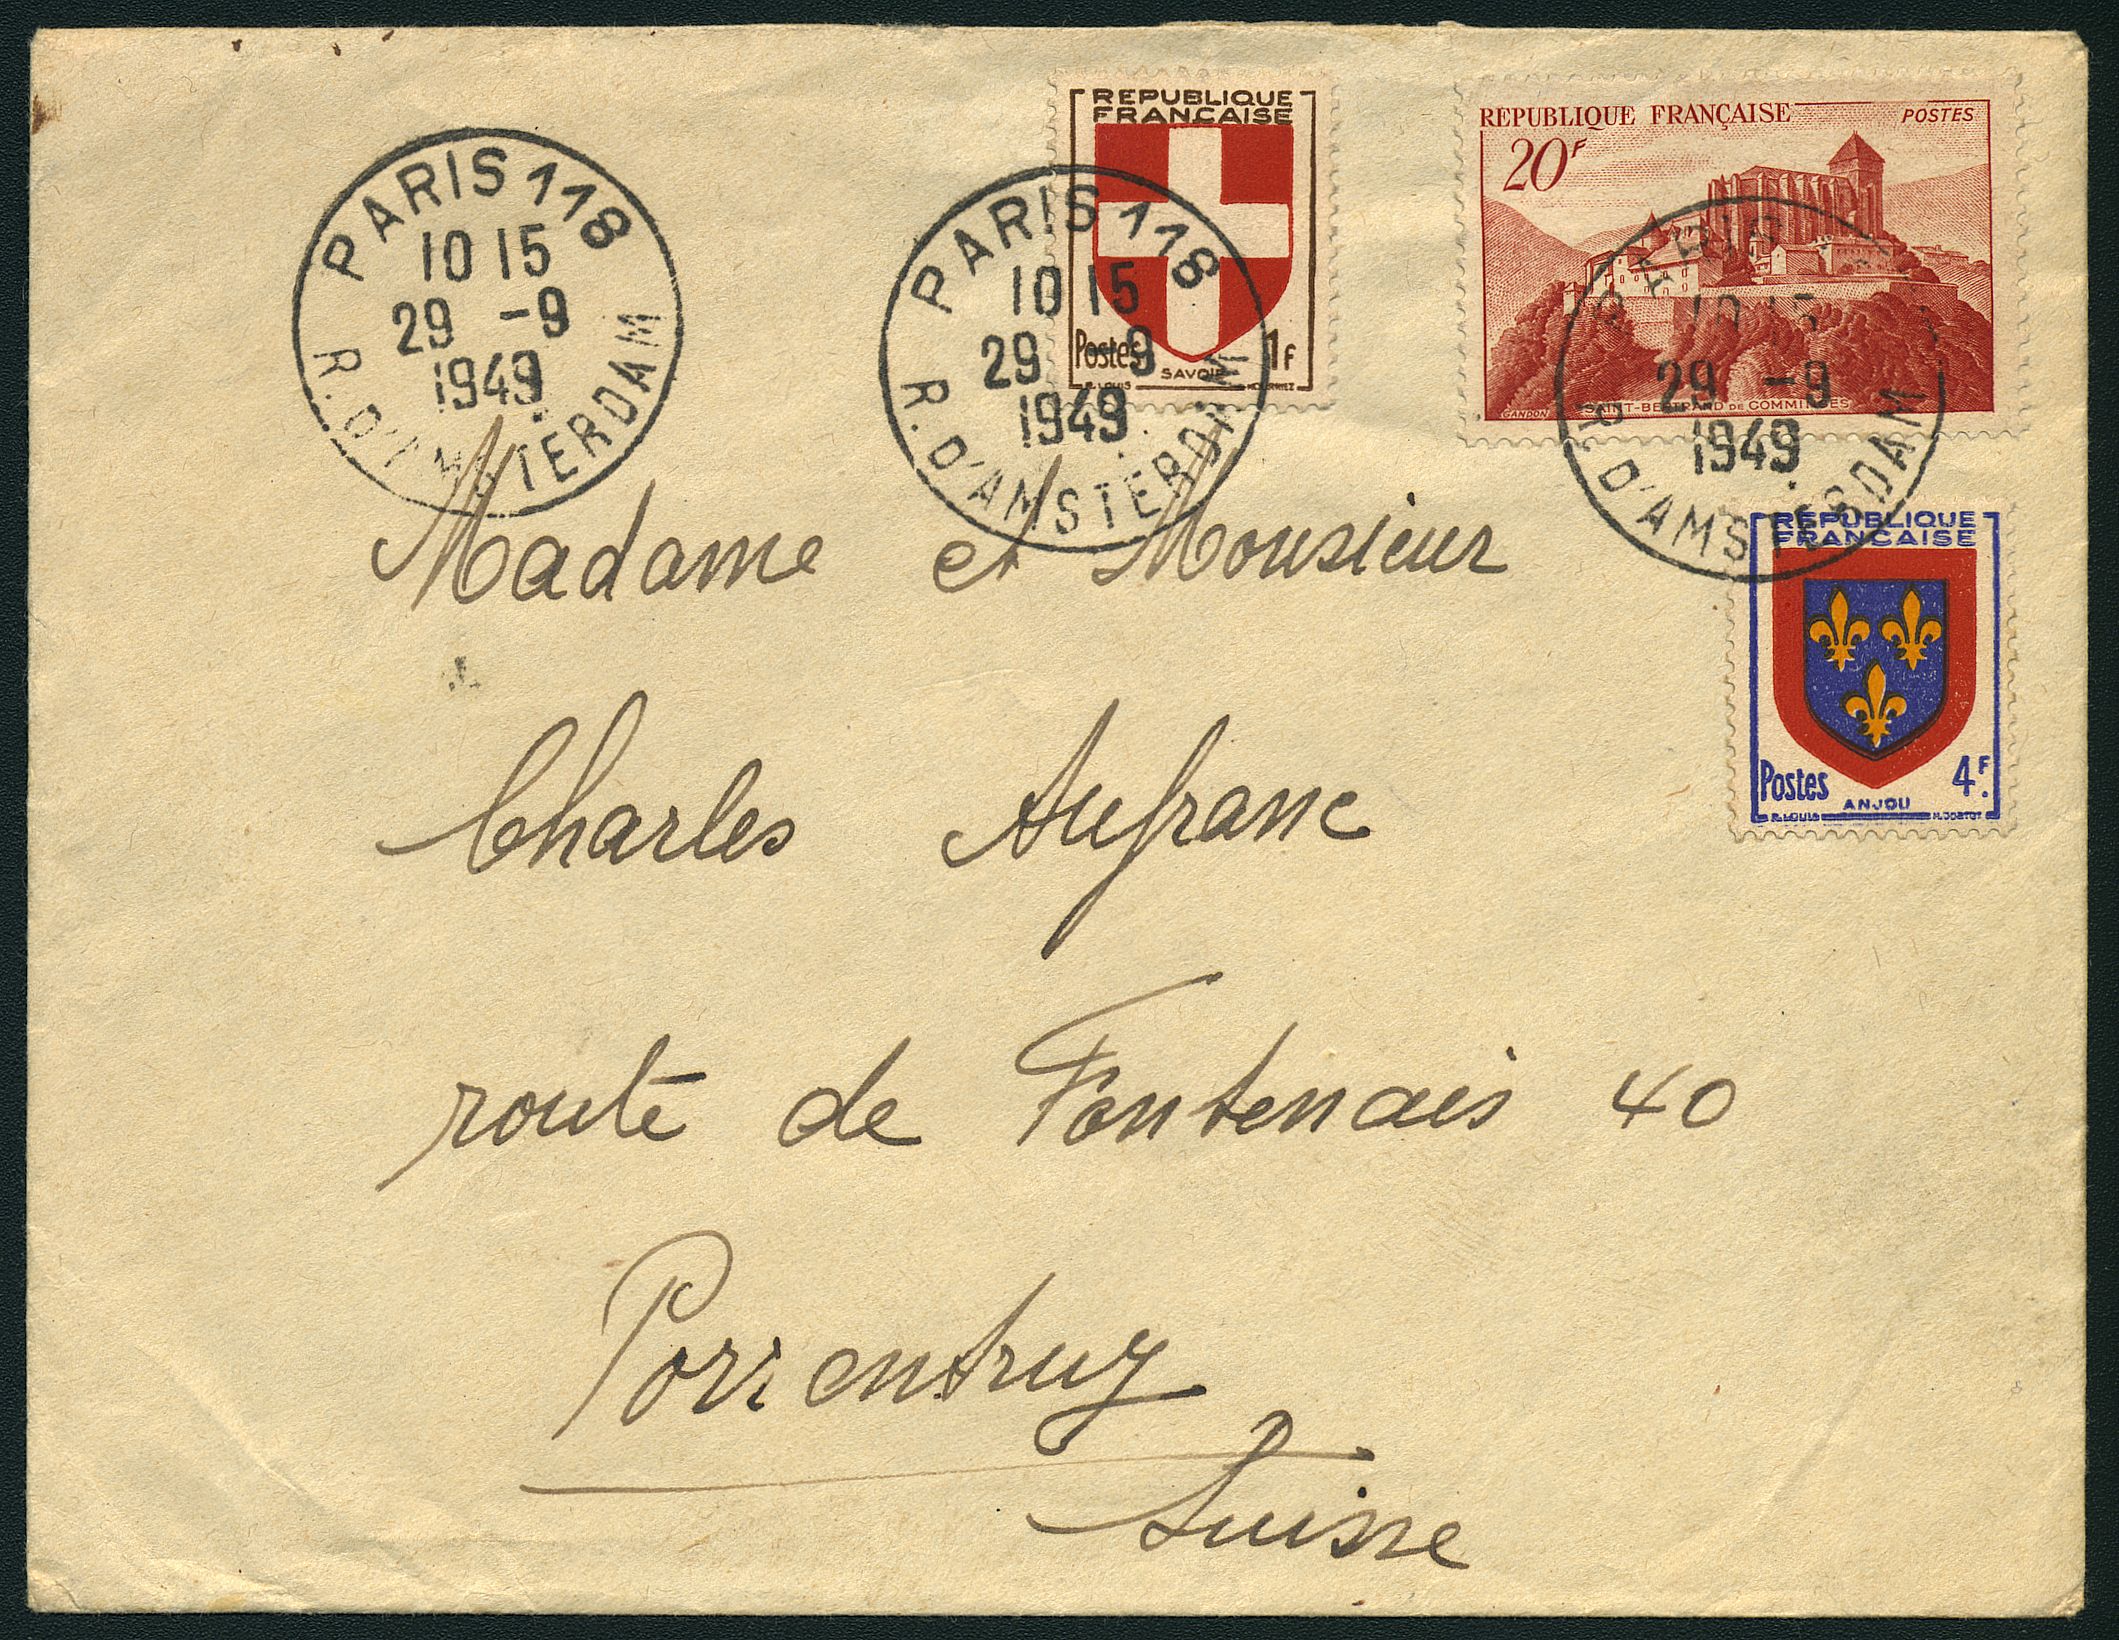 PARIS 118
10 15
29 -9
1949
R. D'AMSTERDAM
PARIS 118
10 15
29 9
1949
R. D'AMSTERDAM
REPUBLIQUE
FRANÇAISE
Postes 1F
SAVOIE
R. LOUIS
REPUBLIQUE FRANÇAISE POSTES
20F
GANDON SAINT-BERTRAND DE COMMINGES
PARIS
10 15
29 -9
1949
R. D'AMSTERDAM
REPUBLIQUE
FRANCAISE
Postes 4F.
ANJOU
R. LOUIS
Madame et Monsieur
Charles Aufranc
route de Fontenais 40
Porrentruy
Suisse